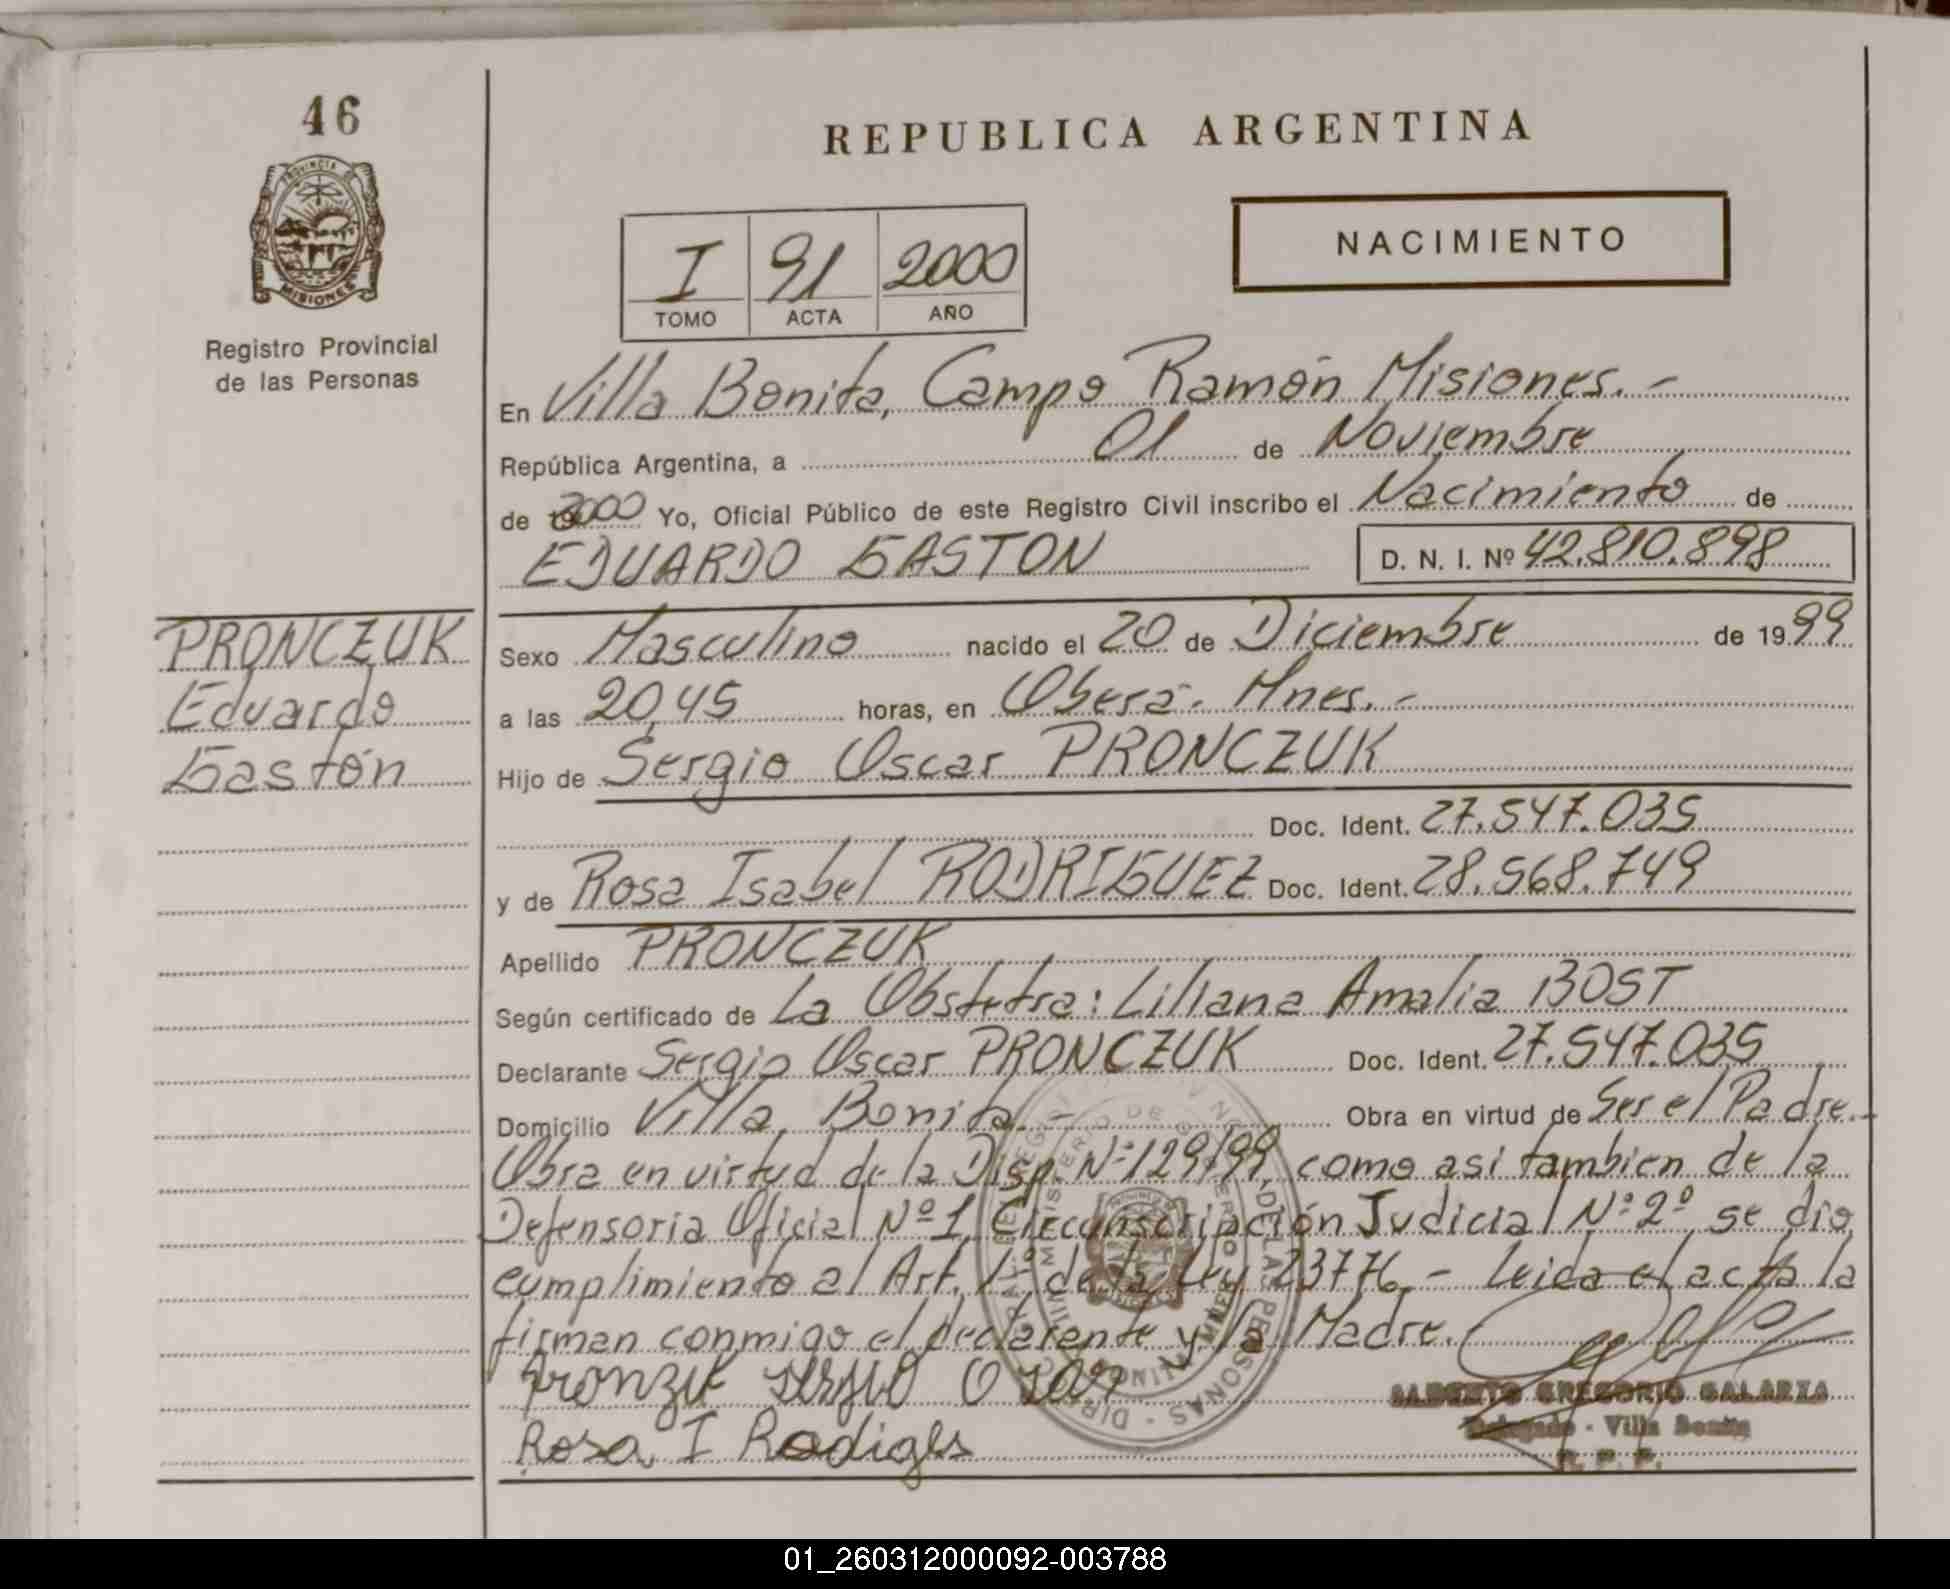 46
PROVINCIA DE
MISIONES
Registro Provincial
de las Personas
REPUBLICA ARGENTINA
NACIMIENTO
I 91 2000
TOMO ACTA AÑO
En Villa Bonita, Campo Ramón Misiones.-
República Argentina, a 01 de Noviembre
de 2000 Yo, Oficial Público de este Registro Civil inscribo el Nacimiento de
EDUARDO GASTON D. N. I. Nº 42.810.898
PRONCZUK
Eduardo
Gastón
Sexo Masculino nacido el 20 de Diciembre de 1999
a las 20,45 horas, en Oberá.- Mnes.-
Hijo de Sergio Oscar PRONCZUK
Doc. Ident. 27.547.035
y de Rosa Isabel RODRIGUEZ Doc. Ident. 28.568.749
Apellido PRONCZUK
Según certificado de La Obstetra: Liliana Amalia BOST
Declarante Sergio Oscar PRONCZUK Doc. Ident. 27.547.035
Domicilio Villa Bonita.- Obra en virtud de Ser el Padre.-
Obra en virtud de la Disp. Nº 129/99, como asi tambien de la
Defensoria Oficial Nº 1, Circunscripción Judicial Nº 2º se dio
cumplimiento al Art. 1º de la Ley 23776.- leida el acta la
firman conmigo el declarante y la Madre.
Pronzuk Sergio Oscar
Rosa I Rodigs
GREGORIO GALARZA
Delegado - Villa Bonita
R. P. P.
01_260312000092-003788